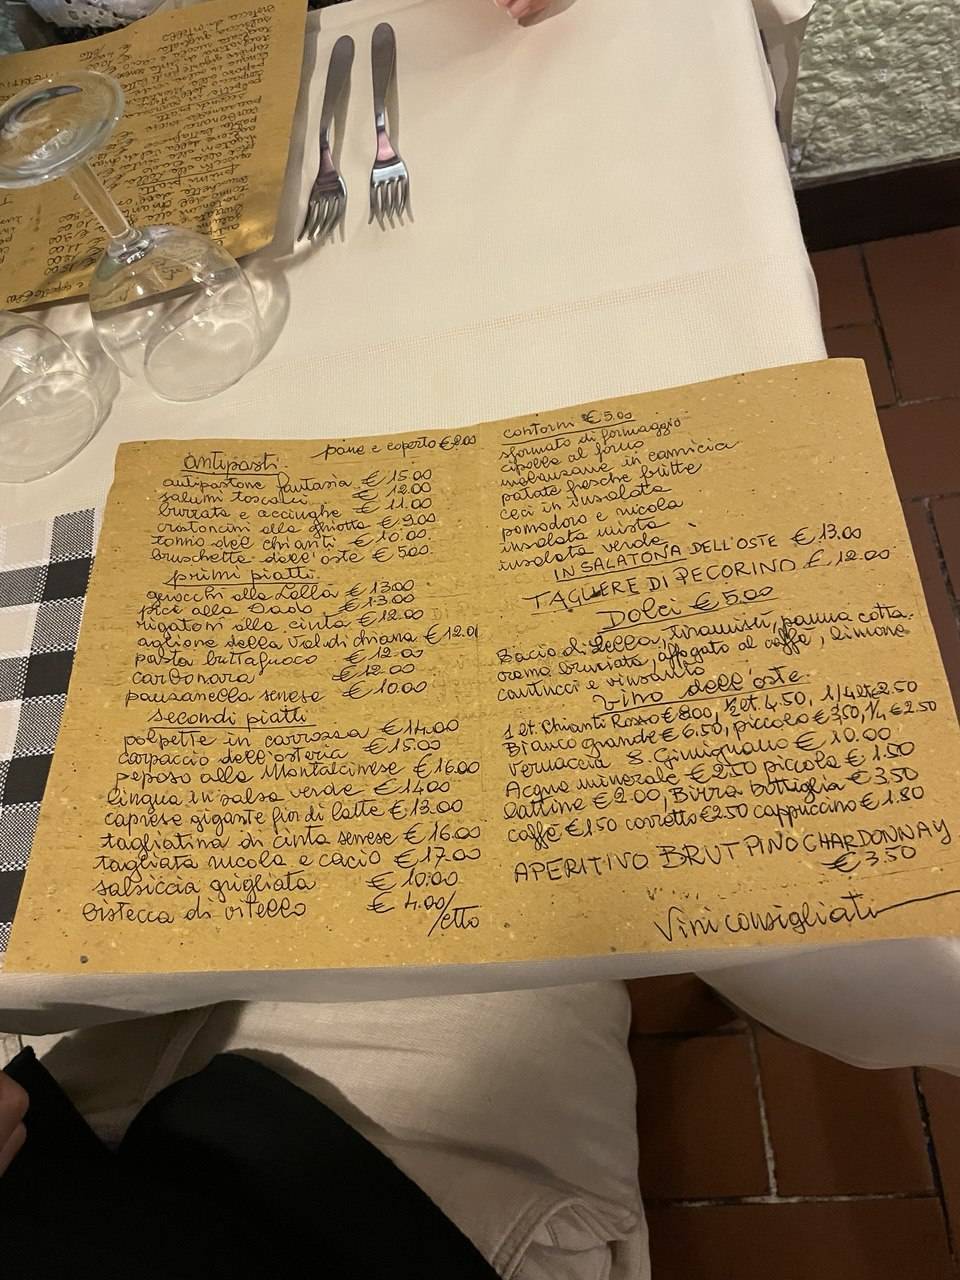 pane e coperto € 2.00
antipasti
antipastone fantasia € 15.00
salumi toscani € 12.00
burrata e acciughe € 11.00
crostoncini alla ghiotta € 9.00
tonno del chianti € 10.00
bruschetta dell'oste € 5.00
primi piatti
gnocchi alla Lalla € 13.00
pici alla Dado € 13.00
rigatoni alla cinta € 12.00
aglione della Valdichiana € 12.0
pasta buttafuoco € 12.00
carbonara € 12.00
panzanella senese € 10.00
secondi piatti
polpette in carrozza € 14.00
carpaccio dell'osteria € 15.00
peposo alla Montalcinese € 16.00
lingua in salsa verde € 14.00
caprese gigante fior di latte € 13.00
tagliatina di cinta senese € 16.00
tagliata rucola e cacio € 17.00
salsiccia grigliata € 10.00
bistecca di vitello € 4.00/etto
contorni € 5.00
sformato di formaggio
cipolla al forno
melanzane in camicia
patate fresche fritte
ceci in insalata
pomodoro e rucola
insalata mista
insalata verde
INSALATONA DELL'OSTE € 13.00
TAGLIERE DI PECORINO € 12.00
Dolci € 5.00
Bacio di Lella, tiramisù, panna cotta
crema bruciata, affogato al caffè, limone
cantucci e vinsanto
vino dell'oste
1 lt. Chianti Rosso € 8.00, 1/2 lt. 4.50, 1/4 lt € 2.50
Bianco grande € 6.50, piccolo € 3,50, 1/4 € 2.50
Vernaccia S. Gimignano € 10.00
Acqua minerale € 2.50 piccola € 1.50
lattine € 2.00, Birra bottiglia € 3.50
caffè € 1.50 corretto € 2.50 cappuccino € 1.80
APERITIVO BRUT PINO CHARDONNAY
€ 3.50
Vini consigliati